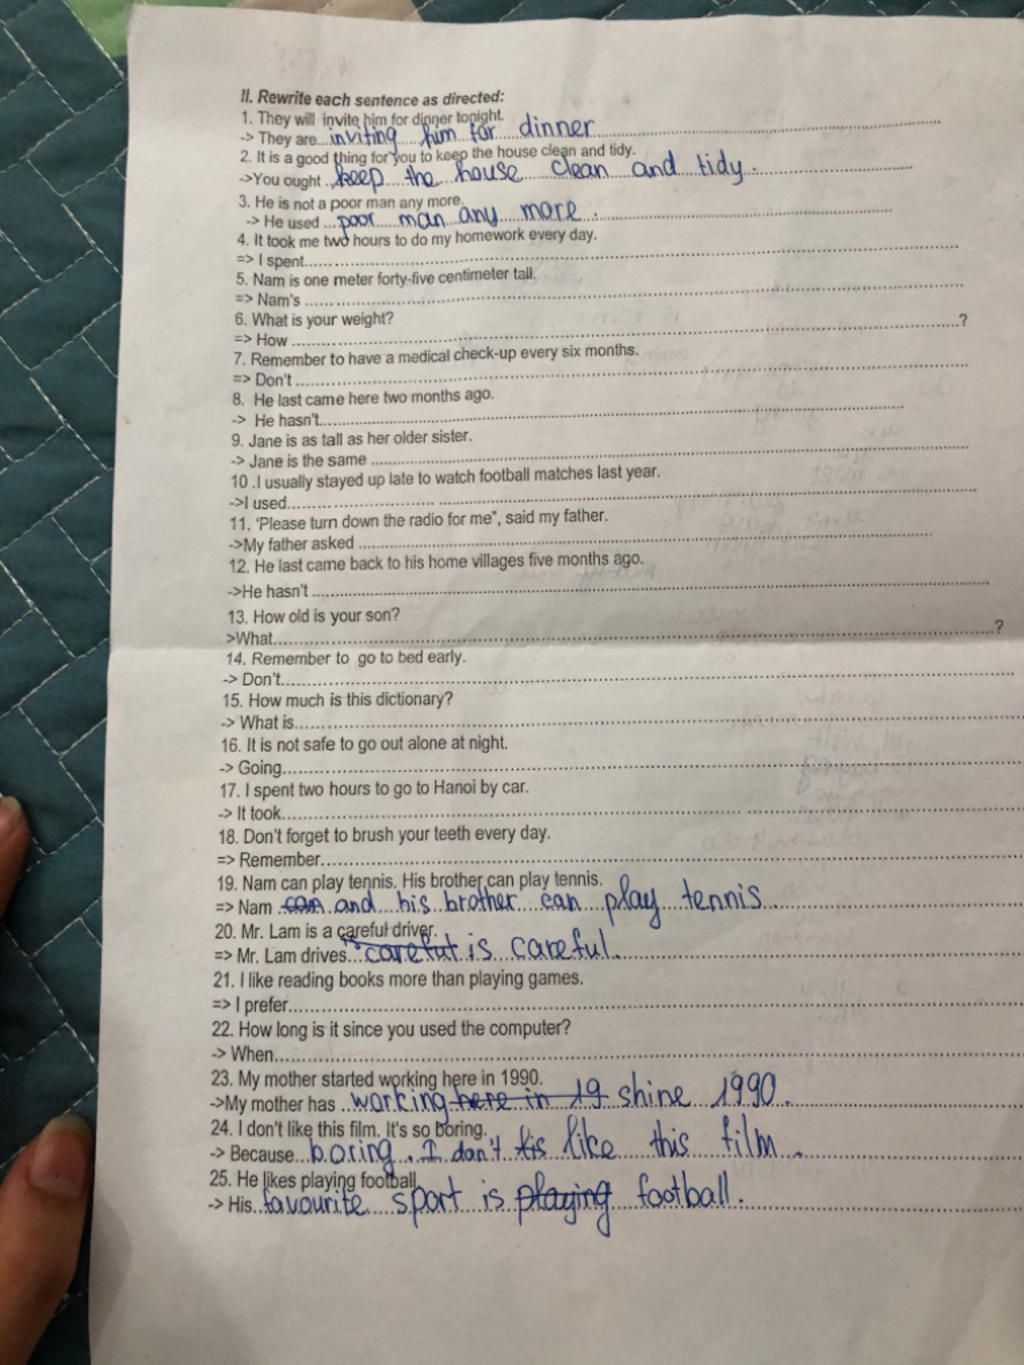 II. Rewrite each sentence as directed:
1. They will invite him for dinner tonight.
-> They are...inviting him for dinner
2. It is a good thing for you to keep the house clean and tidy.
->You ought ..keep the house clean and tidy.
3. He is not a poor man any more.
-> He used ...poor man any more.
4. It took me two hours to do my homework every day.
=> I spent
5. Nam is one meter forty-five centimeter tall.
=> Nam's
6. What is your weight?
=> How ?
7. Remember to have a medical check-up every six months.
=> Don't
8. He last came here two months ago.
-> He hasn't
9. Jane is as tall as her older sister.
-> Jane is the same
10 .I usually stayed up late to watch football matches last year.
->I used
11. 'Please turn down the radio for me", said my father.
->My father asked
12. He last came back to his home villages five months ago.
->He hasn't
13. How old is your son?
>What ?
14. Remember to go to bed early.
-> Don't
15. How much is this dictionary?
-> What is
16. It is not safe to go out alone at night.
-> Going
17. I spent two hours to go to Hanoi by car.
-> It took
18. Don't forget to brush your teeth every day.
=> Remember
19. Nam can play tennis. His brother can play tennis.
=> Nam can and his brother can play tennis
20. Mr. Lam is a careful driver.
=> Mr. Lam drives...careful is careful.
21. I like reading books more than playing games.
=> I prefer
22. How long is it since you used the computer?
-> When
23. My mother started working here in 1990.
->My mother has ..working here in 19 shine 1990.
24. I don't like this film. It's so boring.
-> Because...boring. I don't like this film.
25. He likes playing football.
-> His..favourite sport is playing football.